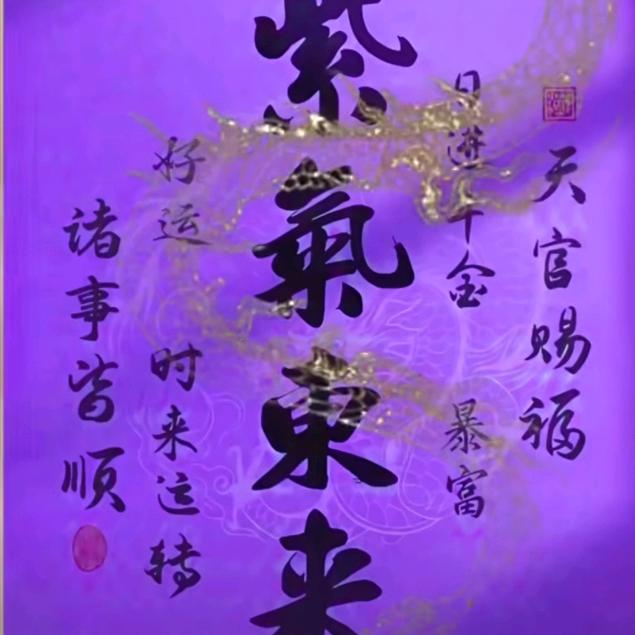 天官赐福
日进千金
暴富
紫氣東来
好运
时来运转
诸事皆顺